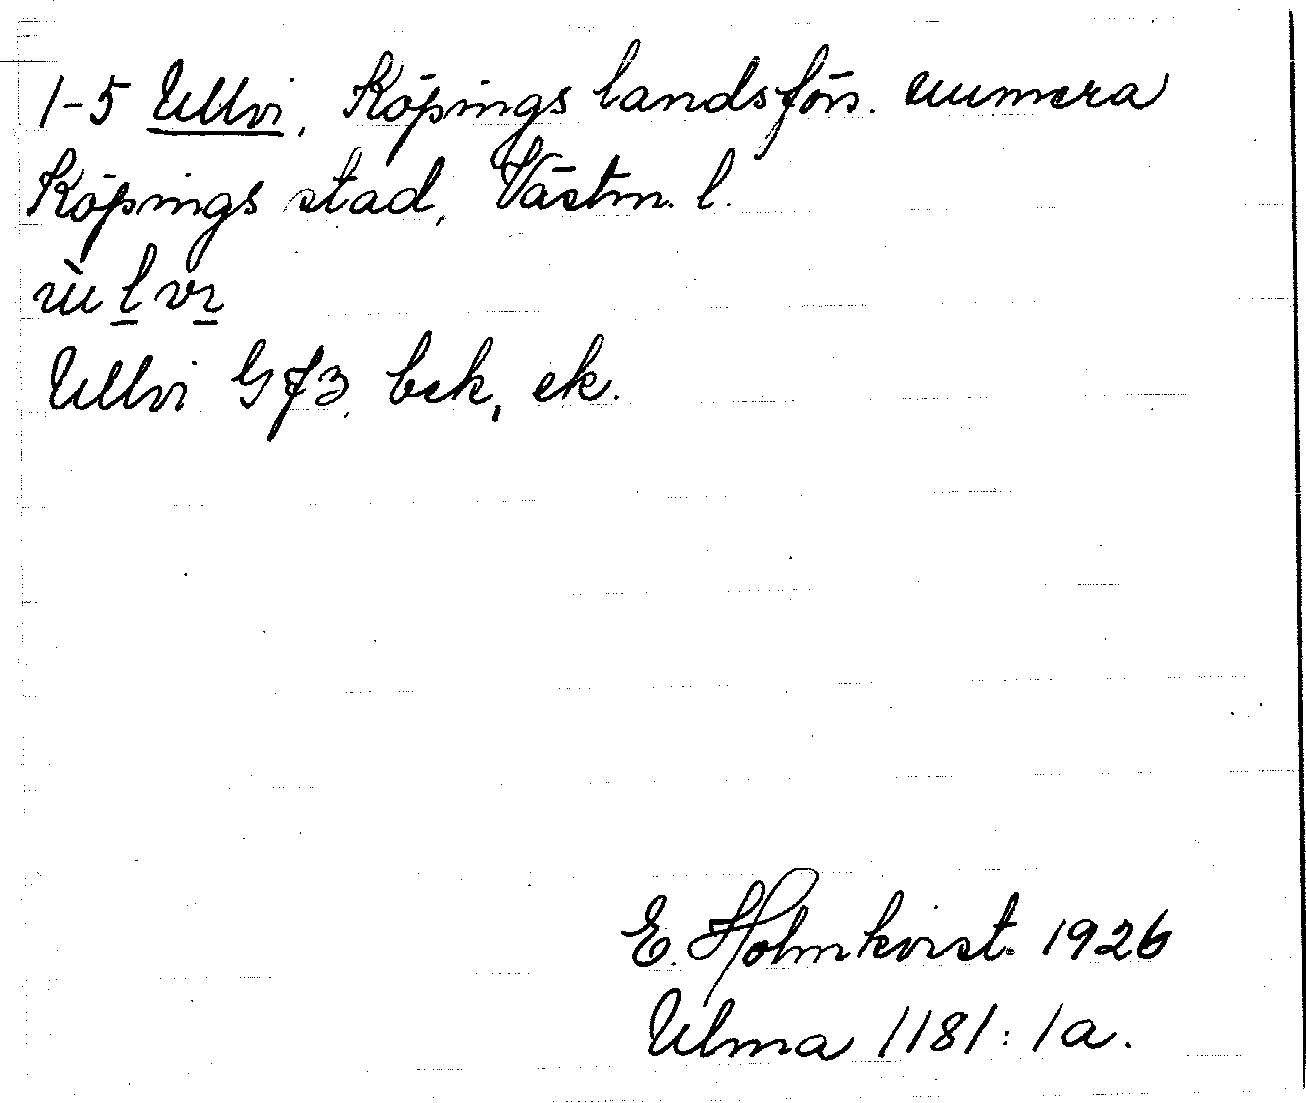 1-5 Ullvi, Köpings landsförs. numera
Köpings stad, Västm. l.
Ullvi GJ3, bek, ek.
E. Holmkvist. 1926
Ulma 1181:1a.